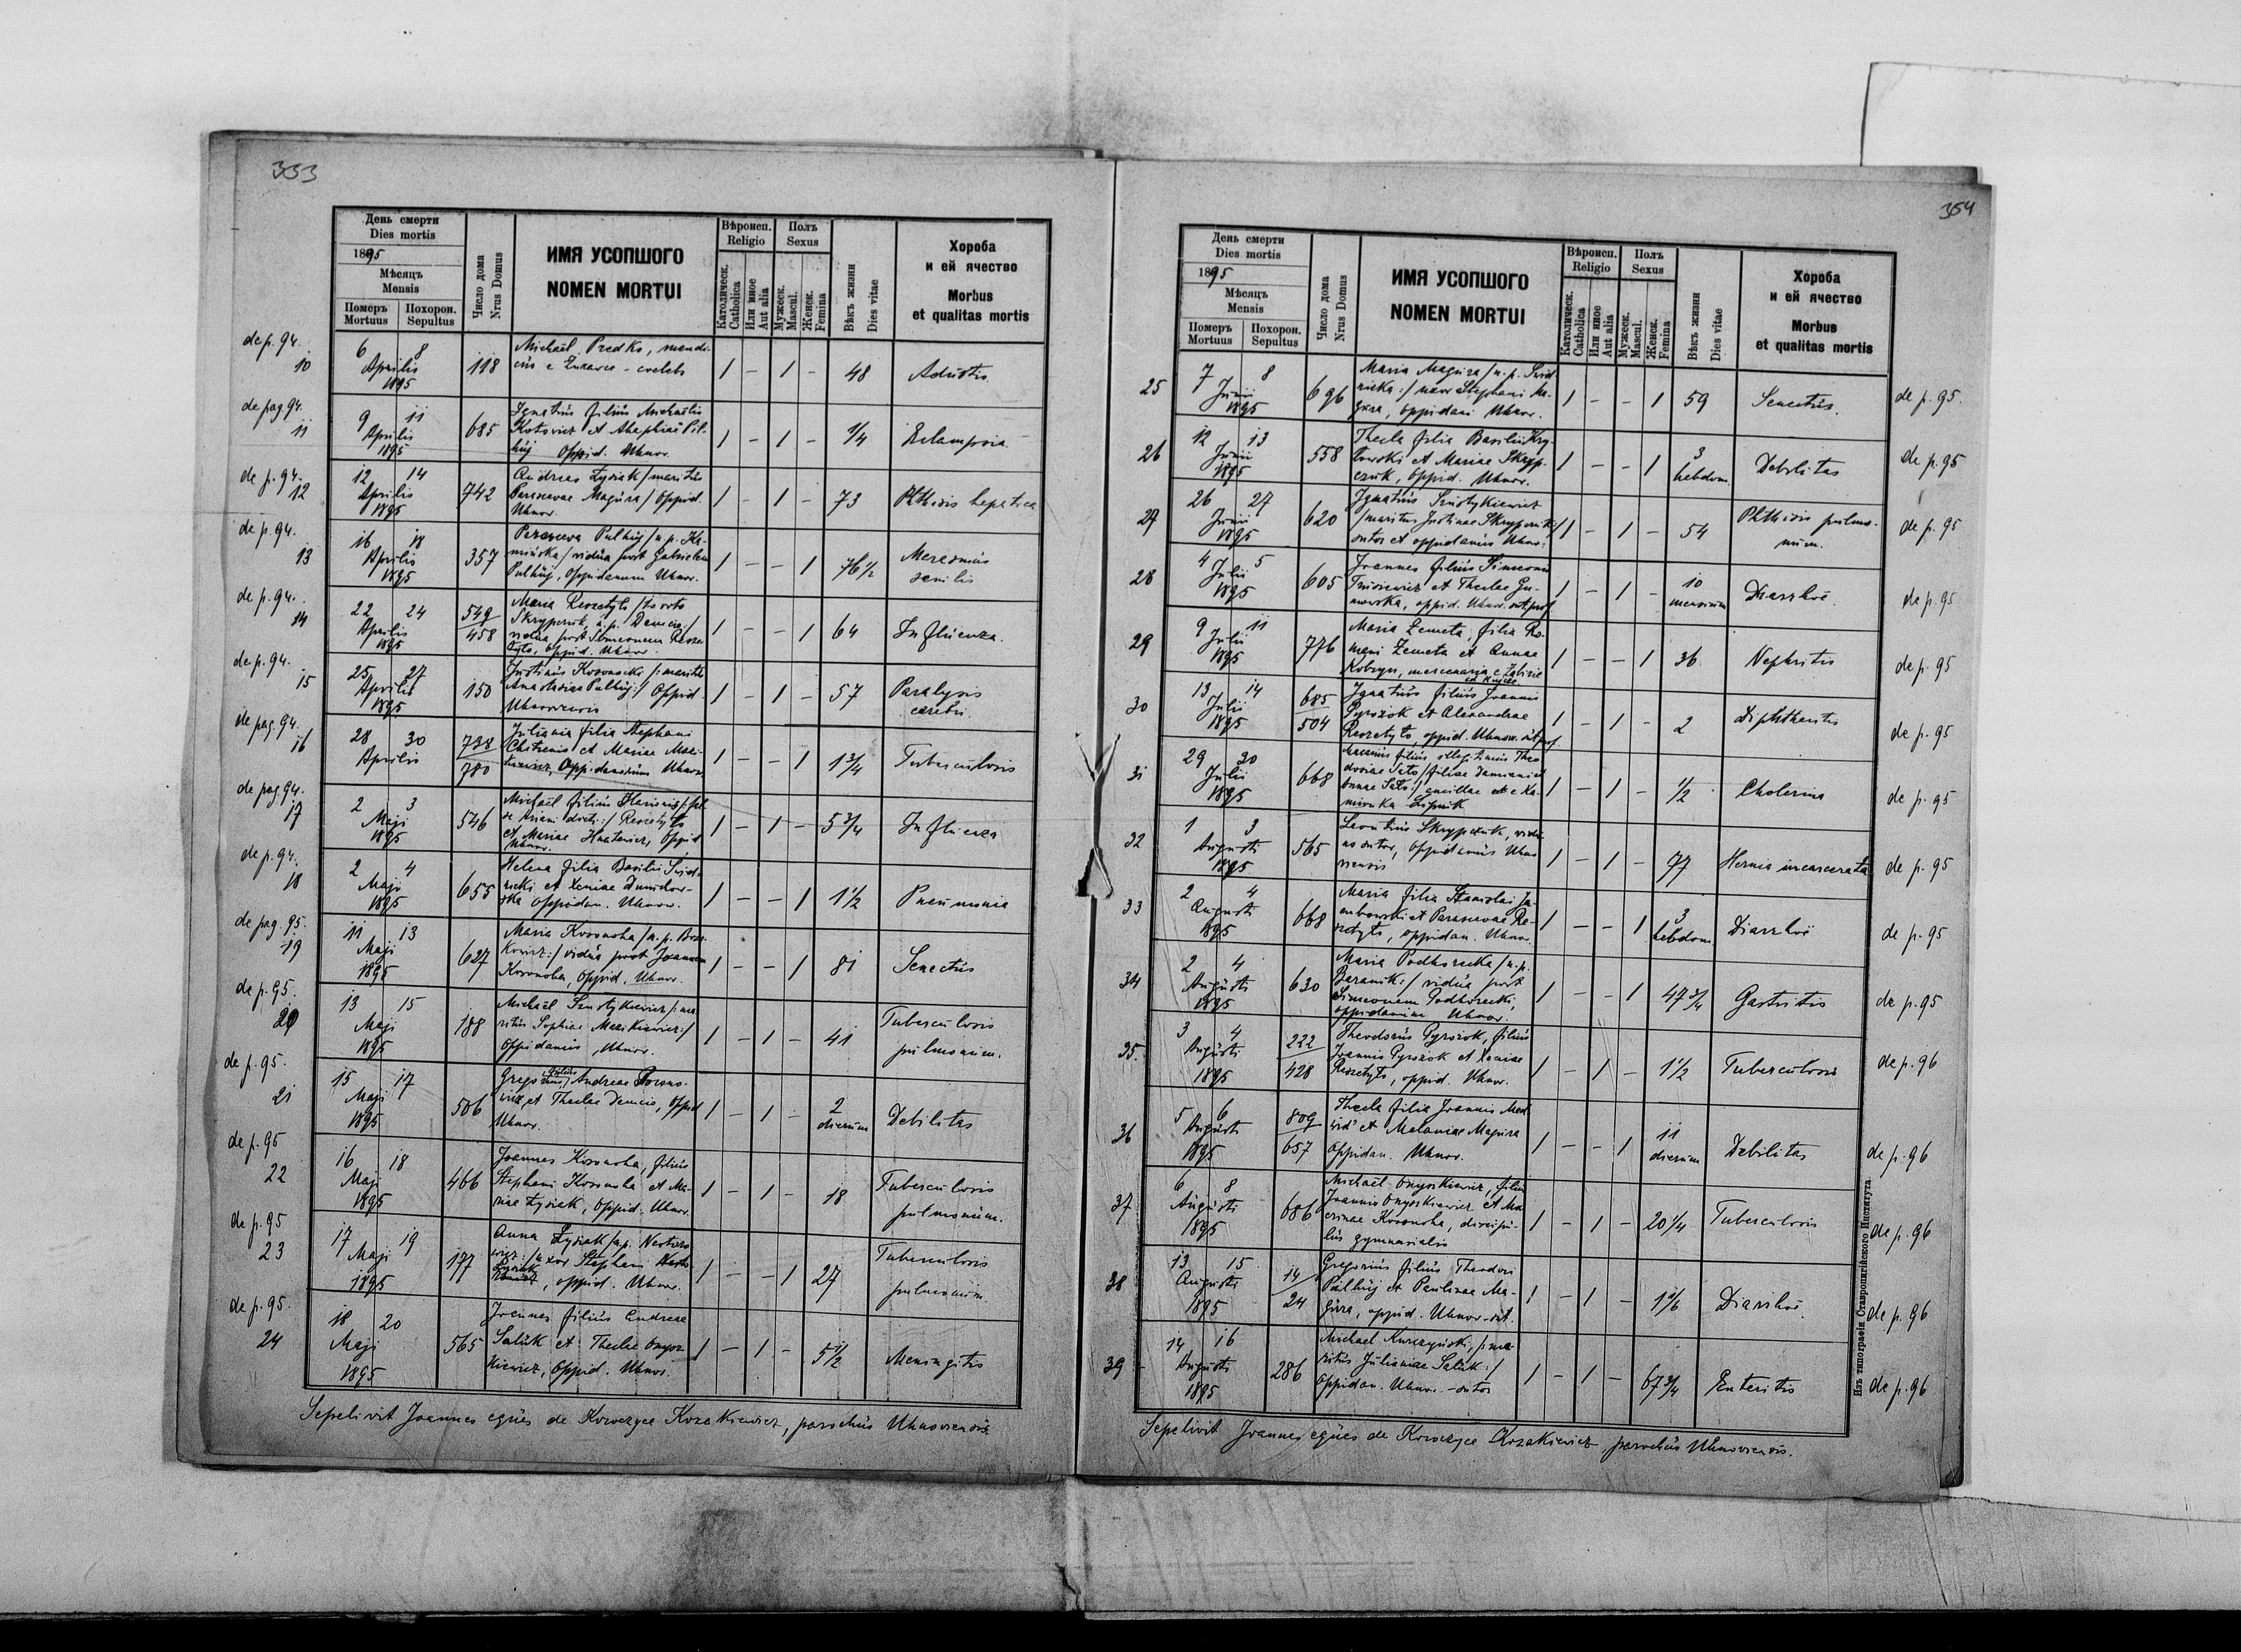 353
День смерти
Dies mortis
1895
Мѣсяцъ
Mensis
Померъ
Mortuus
Похорон.
Sepultus
Число дома
Nrus Domus
ИМЯ УСОПШОГО
NOMEN MORTUI
Вѣроисп.
Religio
Католическ.
Catholica
Или иное
Aut alia
Полъ
Sexus
Мужеск.
Mascul.
Женск.
Femina
Вѣкъ жизни
Dies vitae
Хороба
и ей ячество
Morbus
et qualitas mortis
de p. 94.
10
6 8
Aprilis
1895
118
Michaël Predko, mendi-
cus e Żurawce - coelebs
1 - 1 -
48
Adustis
de pag. 94.
11
9 11
Aprilis
1895
685
Ignatius filius Michaëlis
Kotowicz et Stephaniae Pil-
huj Oppid. Uhnov.
1 - 1 -
1/4
Eclampsia
de p. 94.
12
12 14
Aprilis
1895
742
Andreas Łysiak / maritus
Parascevae Magura / Oppid.
Uhnov.
1 - 1 -
73
Phthisis hepatica
de p. 94.
13
16 18
Aprilis
1895
357
Parasceva Pulhuj / n. p. Ka-
mińska / vidua post Gabrielem
Pulhuj, Oppidanum Uhnov.
1 - - 1
76 1/2
Marasmus
senilis
de p. 94.
14
22 24
Aprilis
1895
549
458
Maria Reszetyło
Skrypczuk, n. p. Demcio /
vidua post Simeonem Resze-
tyło, oppid. Uhnov.
1 - - 1
64
Influenza.
de p. 94.
15
25 27
Aprilis
1895
150
Justinus Kosonocki /: maritus
Anastasiae Pulhuj :/ Oppid.
Uhnoviensis
1 - 1 -
57
Paralysis
cerebri.
de pag. 94.
16
28 30
Aprilis
738
780
Juliania filia Stephani
et Mariae
Oppidanorum Uhnov.
1 - - 1
1 3/4
Tuberculosis
de pag. 94.
17
2 3
Maji
1895
546
Michaël filius
Reszetyło
et Mariae Hnatewicz, Oppid
Uhnov.
1 - 1 -
5 3/4
Influenza
de p. 94.
18
2 4
Maji
1895
655
Helena filia Basilii Svid-
nicki et Xeniae Dumchow-
ska oppidan. Uhnov.
1 - - 1
1 1/2
Pneumonia
de pag. 95.
19
11 13
Maji
1895
627
Maria Kosonoha / n. p.
/ vidua post Joannem
Kosonoha, Oppid. Uhnov.
1 - - 1
81
Senectus
de p. 95.
20
13 15
Maji
1895
188
Michaël Sznotykiewicz /: ma-
ritus Sophiae Mazikiewicz :/
Oppidanus Uhnov.
1 - 1 -
41
Tuberculosis
pulmonum.
de p. 95.
21
15 17
Maji
1895
506
Gregorius, filius Andreae
et Theclae Demcio, oppid
Uhnov.
1 - 1 -
2
dierum
Debilitas
de p. 95
22
16 18
Maji
1895
466
Joannes Kosonoha, filius
Stephani Kosonoha et Ma-
riae Łysiak, Oppid. Uhnov.
1 - 1 -
18
Tuberculosis
pulmonum.
de p. 95
23
17 19
Maji
1895
177
Anna Łysiak / n. p. Nestoro-
wicz :/ uxor Stephani
Łysiak, oppid. Uhnov.
1 - - 1
27
Tuberculosis
pulmonum
de p. 95.
24
18 20
Maji
1895
565
Joannes filius Andreae
Saluk et Theclae Onysz-
kiewicz, Oppid. Uhnov.
1 - 1 -
5 1/2
Meningitis
Sepelivit Joannes eques de Korczyce Kozakiewicz, parochus Uhnoviensis.
354
День смерти
Dies mortis
1895
Мѣсяцъ
Mensis
Померъ
Mortuus
Похорон.
Sepultus
Число дома
Nrus Domus
ИМЯ УСОПШОГО
NOMEN MORTUI
Вѣроисп.
Religio
Католическ.
Catholica
Или иное
Aut alia
Полъ
Sexus
Мужеск.
Mascul.
Женск.
Femina
Вѣкъ жизни
Dies vitae
Хороба
и ей ячество
Morbus
et qualitas mortis
25
7 8
Junii
1895
696
Maria Magura / n. p. Svid-
nicka :/ uxor Stephani Ma-
gura, oppidani Uhnov.
1 - - 1
59
Senectus.
de p. 95.
26
12 13
Junii
1895
558
Thecla filia Basilii Kry-
et Mariae Skryp-
czuk, oppid. Uhnov.
1 - - 1
3
hebdom.
Debilitas
de p. 95
27
26 27
Junii
1895
620
Ignatius Sznotykiewicz
/ maritus Justinae Skrypczuk /
sutor et oppidanus Uhnov.
1 - 1 -
54
Phthisis pulmo-
num.
de p. 95
28
4 5
Julii
1895
605
Joannes filius Simeonis
et Theclae
oppid. Uhnov. sut. prof.
1 - 1 -
10
mensium
Diarrhoë.
de p. 95
29
9 11
Julii
1895
776
Maria Zemeta, filia Ro-
mani Zemeta et Annae
Kobryn, mercenaria e
1 - - 1
36
Nephritis
de p. 95
30
13 14
Julii
1895
685
504
Ignatius filius Joannis
Pyrożok et Alexandrae
Reszetyło, oppid. Uhnov. sut. prof.
1 - 1 -
2
Diphtheritis
de p. 95
31
29 30
Julii
1895
668
filius illegitimus Theo-
dosiae Sało / filiae Damiani et
Annae Sało :/ ancillae e Ka-
mionka Lipnik
1 - 1 -
1/2
Cholerina
de p. 95
32
1 3
Augusti
1895
565
Leontius Skrypczuk, vidu-
us sutor, Oppidanus Uhno-
viensis
1 - 1 -
77
Hernia incarcerata
de p. 95
33
2 4
Augusti
1895
668
Maria filia Stanislai Ja-
et Parascevae Re-
szetyło, oppidan. Uhnov.
1 - - 1
3
hebdom
Diarrhoë
de p. 95
34
2 4
Augusti
1895
630
Maria Podhorecka / n. p.
Baranik :/ vidua post
Simeonem Podhorecki,
oppidanum Uhnov.
1 - - 1
47 3/4
Gastritis
de p. 95
35.
3 4
Augusti
1895
222
428
Theodosius Pyrożok, filius
Joannis Pyrożok et Xeniae
Reszetyło, oppid. Uhnov.
1 - 1 -
1 1/2
Tuberculosis
de p. 96
36
5 6
Augusti
1895
809
657
Thecla filia Joannis Med-
wid' et Melaniae Magura
oppidan. Uhnov.
1 - - 1
11
dierum
Debilitas
de p. 96
37
6 8
Augusti
1895
686
Michaël Onyszkiewicz, filius
Joannis Onyszkiewicz et Ma-
crinae Kosonoha, discipu-
lus gymnasialis
1 - 1 -
20 1/4
Tuberculosis
de p. 96
38
13 15
Augusti
1895
14
24
Gregorius filius Theodori
Pulhuj et Paulinae Ma-
gura, oppid. Uhnov. - sut.
1 - 1 -
1 1/6
Diarrhoë
de p. 96
39
14 16
Augusti
1895
286
Michael Kurczyński, /: ma-
ritus Julianiae Saluk :/
Oppidan. Uhnov. - sutor
1 - 1 -
67 3/4
Enteritis
de p. 96
Изъ типографіи Ставропигійского Института
Sepelivit Joannes eques de Korczyce Kozakiewicz, parochus Uhnoviensis.